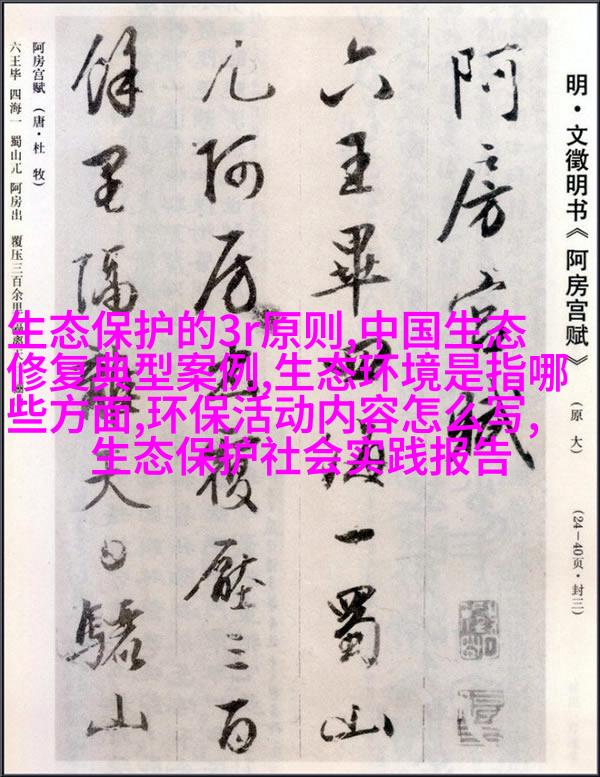 明·文徵明书《阿房宫赋》
（原大）
（24—40页·封三）
阿房宮賦
六王畢四海一蜀山
兀阿房出覆壓三百
餘里隔離天日驪山
阿房宫赋（唐·杜 牧）
六王毕 四海一 蜀山兀 阿房出 覆压三百余里
生态保护的3r原则,中国生态
修复典型案例,生态环境是指哪
些方面,环保活动内容怎么写,
生态保护社会实践报告